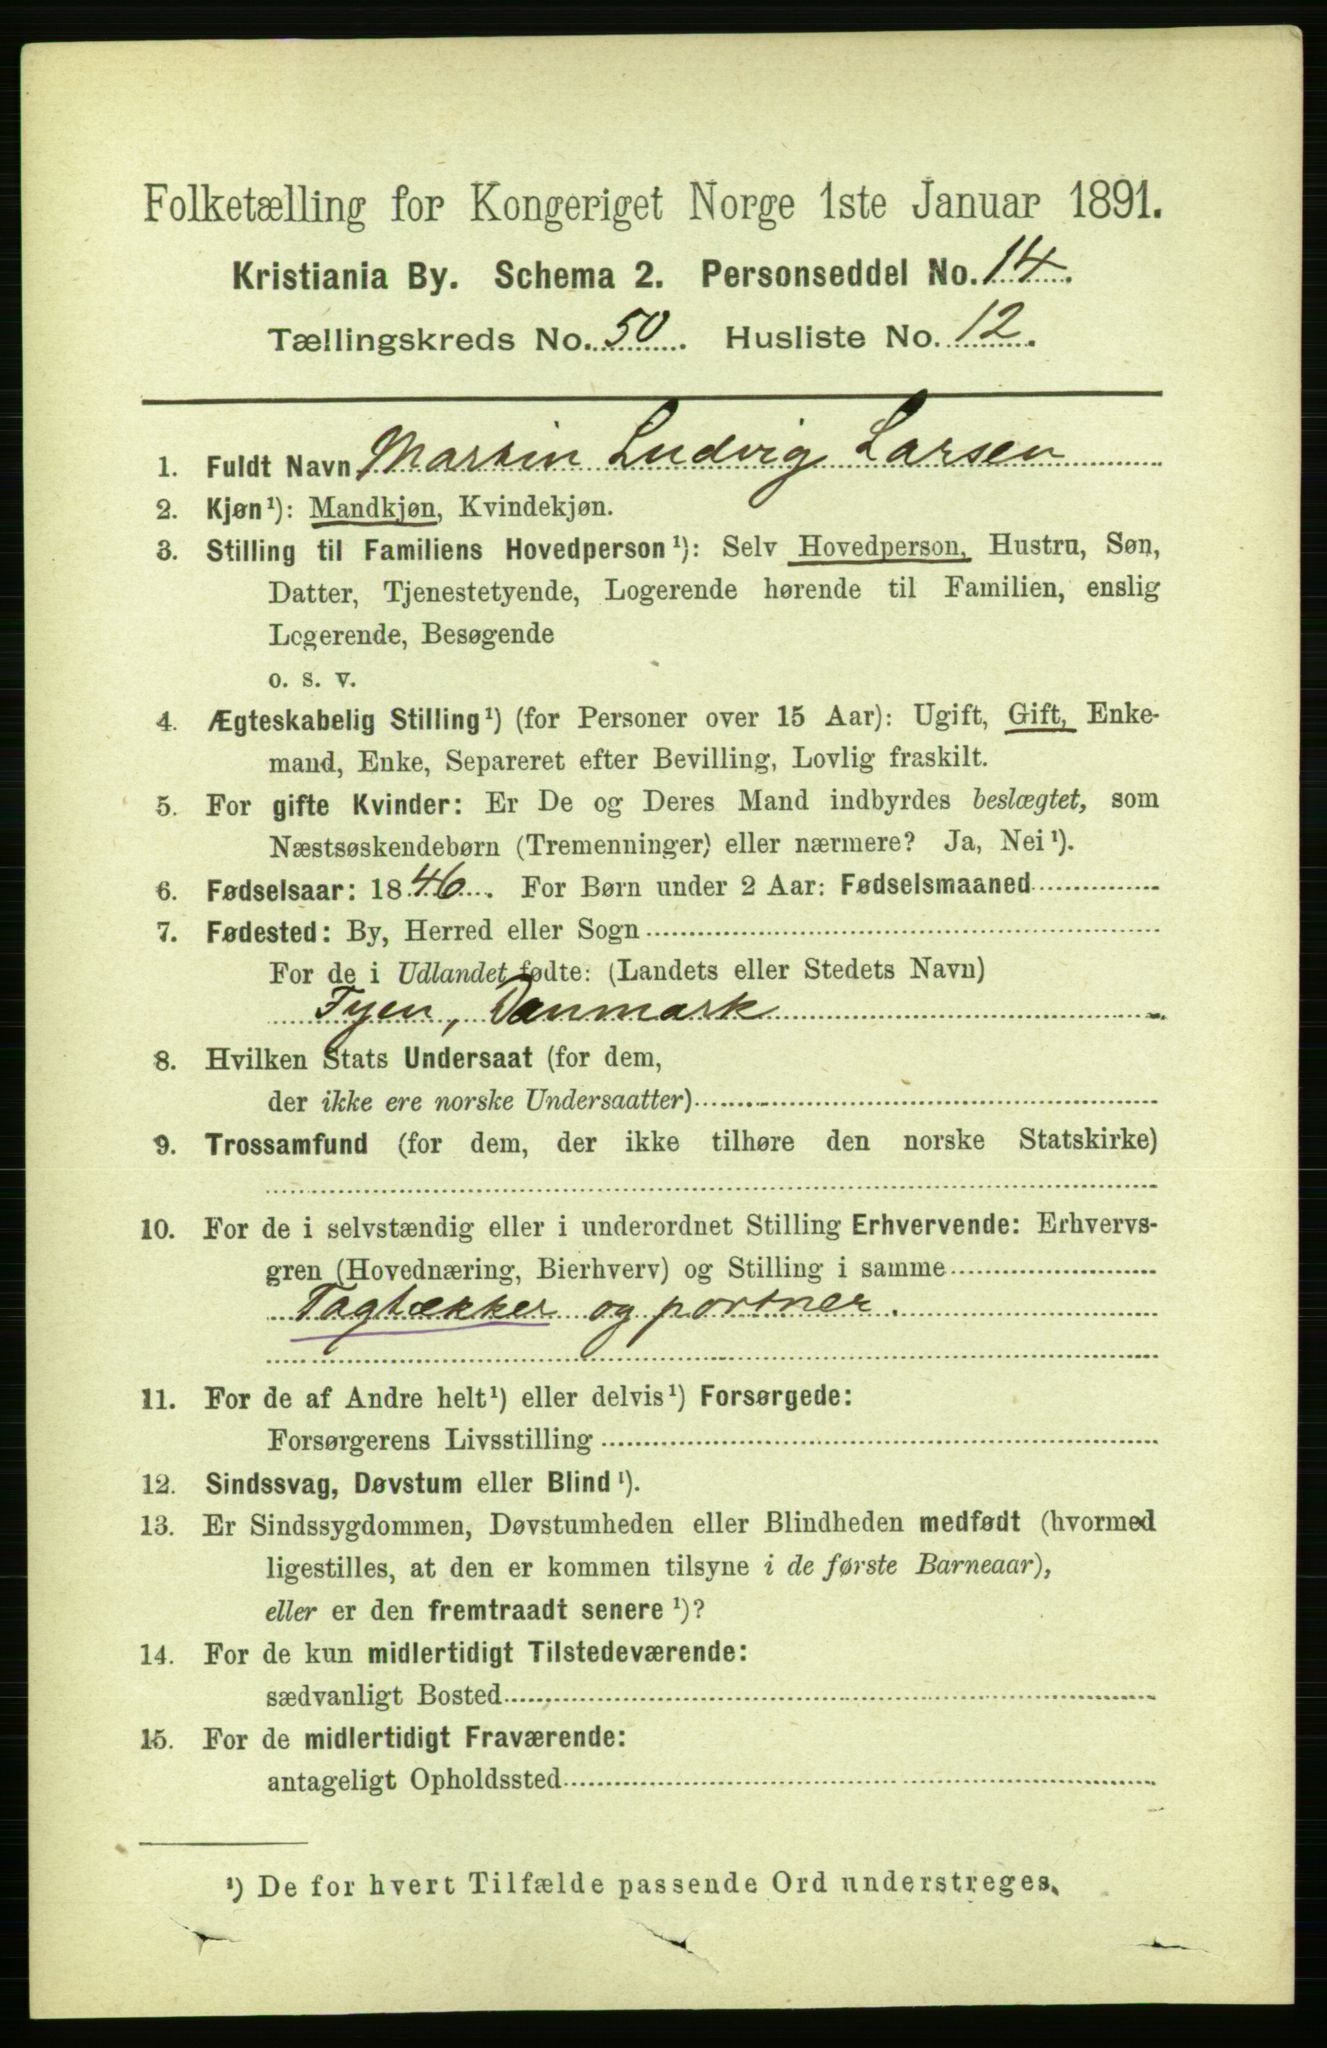 Folketælling for Kongeriget Norge 1ste Januar 1891.
Kristiania By. Schema 2. Personseddel No. 14.
Tællingskreds No. 50. Husliste No. 12.
1. Fuldt Navn Martin Ludvig Larsen
2. Kjøn¹): Mandkjøn, Kvindekjøn.
3. Stilling til Familiens Hovedperson¹): Selv Hovedperson, Hustru, Søn,
Datter, Tjenestetyende, Logerende hørende til Familien, enslig
Logerende, Besøgende
o. s. v.
4. Ægteskabelig Stilling¹) (for Personer over 15 Aar): Ugift, Gift, Enke-
mand, Enke, Separeret efter Bevilling, Lovlig fraskilt.
5. For gifte Kvinder: Er De og Deres Mand indbyrdes beslægtet, som
Næstsøskendebørn (Tremenninger) eller nærmere? Ja, Nei¹).
6. Fødselsaar: 1846. For Børn under 2 Aar: Fødselsmaaned
7. Fødested: By, Herred eller Sogn
For de i Udlandet fødte: (Landets eller Stedets Navn)
Fyen, Danmark
8. Hvilken Stats Undersaat (for dem,
der ikke ere norske Undersaatter)
9. Trossamfund (for dem, der ikke tilhøre den norske Statskirke)
10. For de i selvstændig eller i underordnet Stilling Erhvervende: Erhvervs-
gren (Hovednæring, Bierhverv) og Stilling i samme
Tagtækker og portner.
11. For de af Andre helt¹) eller delvis¹) Forsørgede:
Forsørgerens Livsstilling
12. Sindssvag, Døvstum eller Blind¹).
13. Er Sindssygdommen, Døvstumheden eller Blindheden medfødt (hvormed
ligestilles, at den er kommen tilsyne i de første Barneaar),
eller er den fremtraadt senere¹)?
14. For de kun midlertidigt Tilstedeværende:
sædvanligt Bosted
15. For de midlertidigt Fraværende:
antageligt Opholdssted
¹) De for hvert Tilfælde passende Ord understreges.